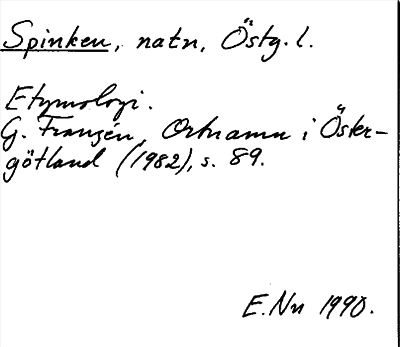 Spinken, natn, Östg. l.
Etymologi.
G. Franzén, Ortnamn i Öster-
götland (1982), s. 89.
E.Nn 1990.